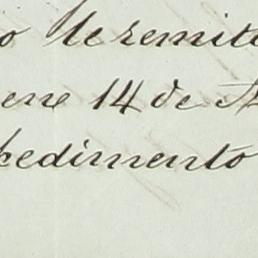 o le remite
ene 14 de A
pedimento